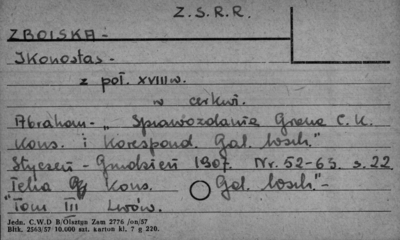 Z.S.R.R.
ZBOISKA-
Ikonostas -
z poł. XVIII w.
w cerkwi.
Abraham - "Sprawozdania Grona C.K.
Kons. i Korespond. Gal. wsch."
Styczeń - Grudzień 1907. Nr. 52-63. s. 22
Teka Kons. Gal. wsch." -
Tom III Lwów.
Jedn. C.W.D B/Olsztyn Zam 2776 /on/57
Bltk. 2563/57 10.000 szt. karton kl. 7 g 220.